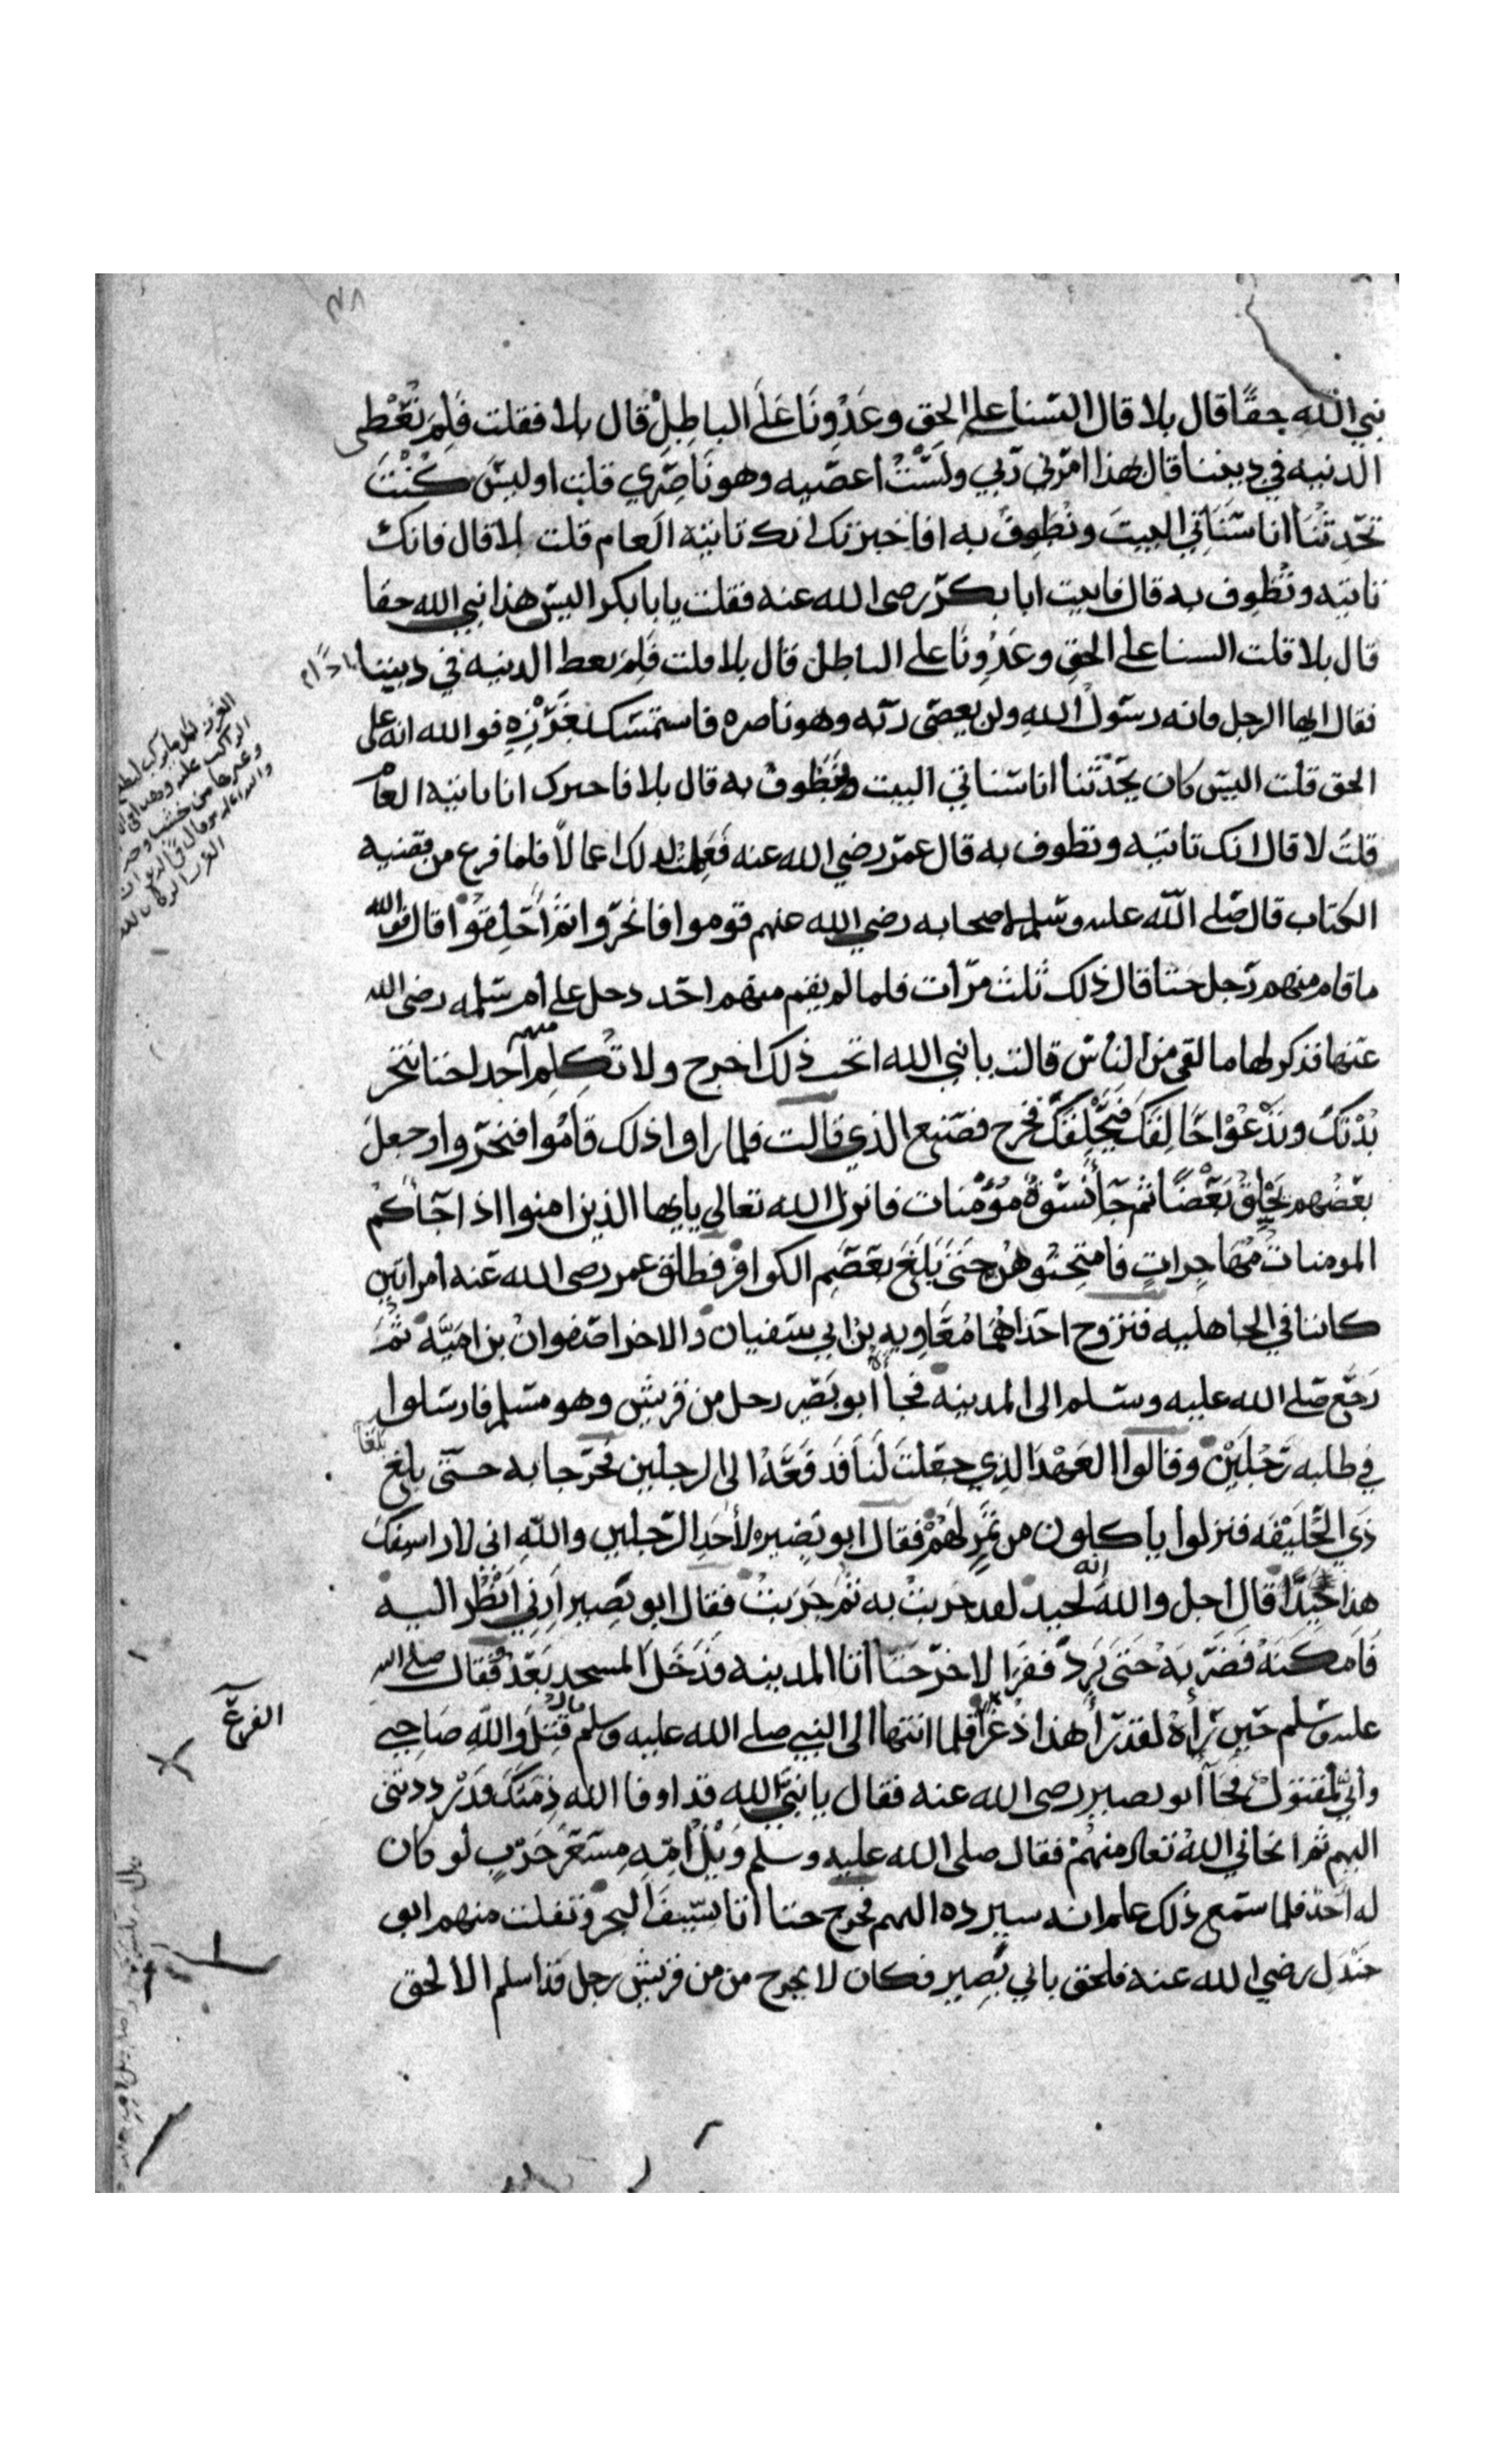 نبي الله حقًا قال بلا قال السنا على الحق وعَدُونا عَلَى الباطِلْ قال بلا فقلت فَلِمَ نُعْطى
الدنيه في ديننا قال هذا امرني ربي ولَسْتُ اعصيه وهو نَاصِري قلت اوليسَ كُنْتَ
تحدثنا انا سَنَاتي البيتَ ونُطوف به افاخبرتك انك تاتيه العام قلت لا قال فانك
تاتيه وتُطوف به قال فاتيت ابا بكر رضى الله عنه فقلت يا بابكر اليس هذا نبي الله حقا
قال بلا قلت السنا على الحق وعَدُونا على الباطل قال بلا قلت فَلِمَ نعط الدنيه في ديننا
فقال ايها الرجل فانه رسول الله ولن يعصى ربه وهو ناصره فاستمسك بغَرْزِه فوالله انه على
الحق قلت اليس كان يحدثنا انا سناتي البيت ونطوف به قال بلا فاخبرك انا ناتيه العام
قلتَ لا قال انك تاتيه وتطوف به قال عمر رضي الله عنه فَعَملتُ لذلك اعمالاً فلما فرغ من قضيه
الكتاب قال صلى الله عليه وسلم لاصحابه رضي الله عنهم قوموا فانحروا ثم احلقوا قال فوالله
ما قام منهم رجل حتا قال ذلك ثلث مرات فلما لم يقم منهم احد دخل على أم سلمه رضى الله
عنها فذكر لها ما لقى من الناس قالت يا نبي الله اتحب ذلك اخرج ولا تُكلم احدا منهم حتا تنحر
بُدْنَكَ وتَدْعُوْا حَالِقَكَ فيَحْلِقَكَ فخرج فصنع الذي قالت فلما راوا ذلك قامُوا فنحروا وجعل
بعضُهم يَحْلِقُ بَعْضًا ثم جآ نُسْوَةٌ مُؤمنات فانزل الله تعالى يايها الذين امنوا اذا جآكم
المومنات مُهَاجِراتٍ فامتَحِنُوهُنَّ حَتَى بَلَغَ بعِصَمِ الكوافر فطلق عمر رضى الله عنه امراتين
كانتا في الجاهليه فتزوج احداهُمَا مُعَاويه بن ابي سفيان والاخرا صفوان بن اميَّه ثُمَّ
رَجَعَ صلى الله عليه وسلم الى المدينة فجأه أبو بَصير رجل من قريش وهو مسلم فارسَلوا
في طلبه رَجُلَيْن وقالوا العَهْدَ الذي جعَلتَ لَنَا فَدفَعَهُ الى الرجلين فخرجا به حتى بلغ
ذي الحُلَيْفَه فنزلوا ياكلون من تَمرٍ لَهُمْ فقال ابو بَصير لأحَدِ الرجلين والله اني لارا سيفك
هذا جَيِّدًا قال اجل والله انه لجيد لقد جربت به ثم جَرَبتْ فقال ابو بَصير اَرِني اَنْظُر اليه
فَاَمكنَهُ فَضَرَبَهُ حَتَى بَردَ ففرَ الاخر حَتا اتا المدينه فَدَخَلَ المسجد يَعْدُو فقال صلى الله
عليه وسلم حين رأهُ لقد رأ هذا ذُعْرًا فلما انتها الى النبي صلى الله عليه وسلم قال قُتِلَ والله صَاحِبي
وانيَ لمقتولٌ فجآ ابو بصير رضى الله عنه فقال يا نبيَّ الله قد اوفا الله ذِمَتَكَ قد رددتنى
اليهم ثم انجاني اللهُ تعالى منهمْ فقال صلى الله عليه وسلم وَيْلُ امِّهِ مِسْعَرُ حَرْبٍ لو كان
له احَدٌ فلما سمع ذلك علم انه سيرده اليهم فخرج حتا اتا سِيْفَ البحر وتفلت منهم ابو
جَنْدَل رضي الله عنه فلحق بابي بَصِير فكان لا يخرج من من قريش رجل قد اسلم الا لحق